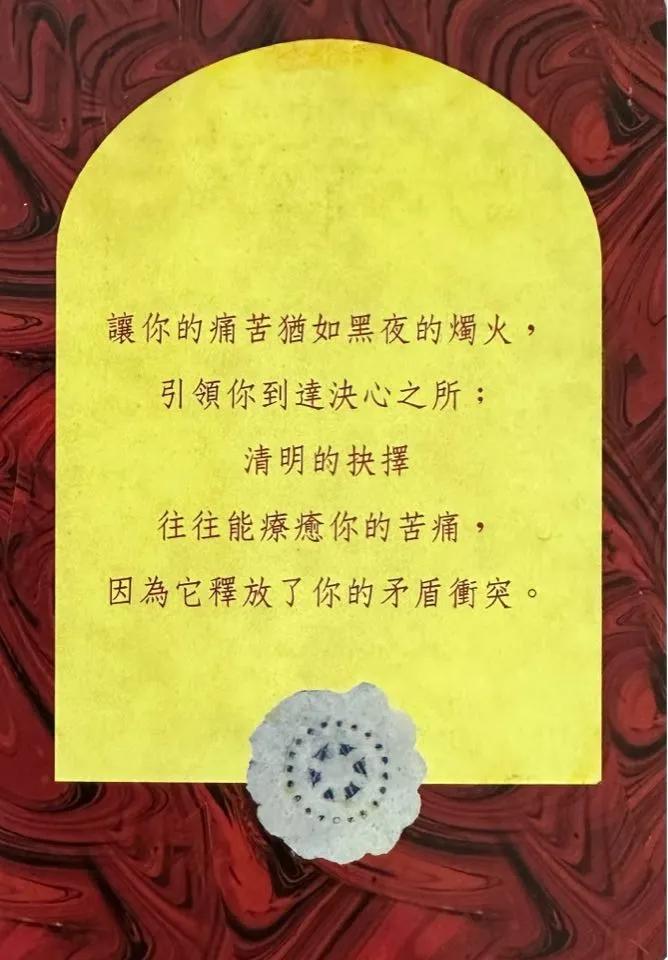 讓你的痛苦猶如黑夜的燭火，
引領你到達決心之所；
清明的抉擇
往往能療癒你的苦痛，
因為它釋放了你的矛盾衝突。